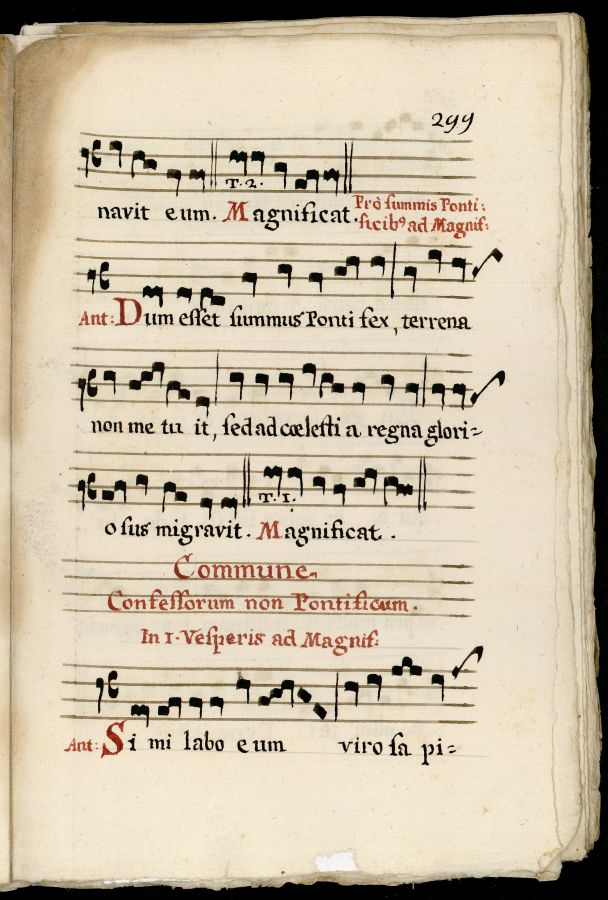 299
T. 2.
navit eum. Magnificat. Pro summis Ponti:
ficib⁹ ad Magnif:
Ant: Dum esset summus Ponti fex, terrena
non me tu it, sed ad cœlesti a regna glori=
T. 1.
o sus migravit. Magnificat.
Commune
Confessorum non Pontificum.
In 1. Vesperis ad Magnif:
Ant: Si mi labo eum viro sa pi=